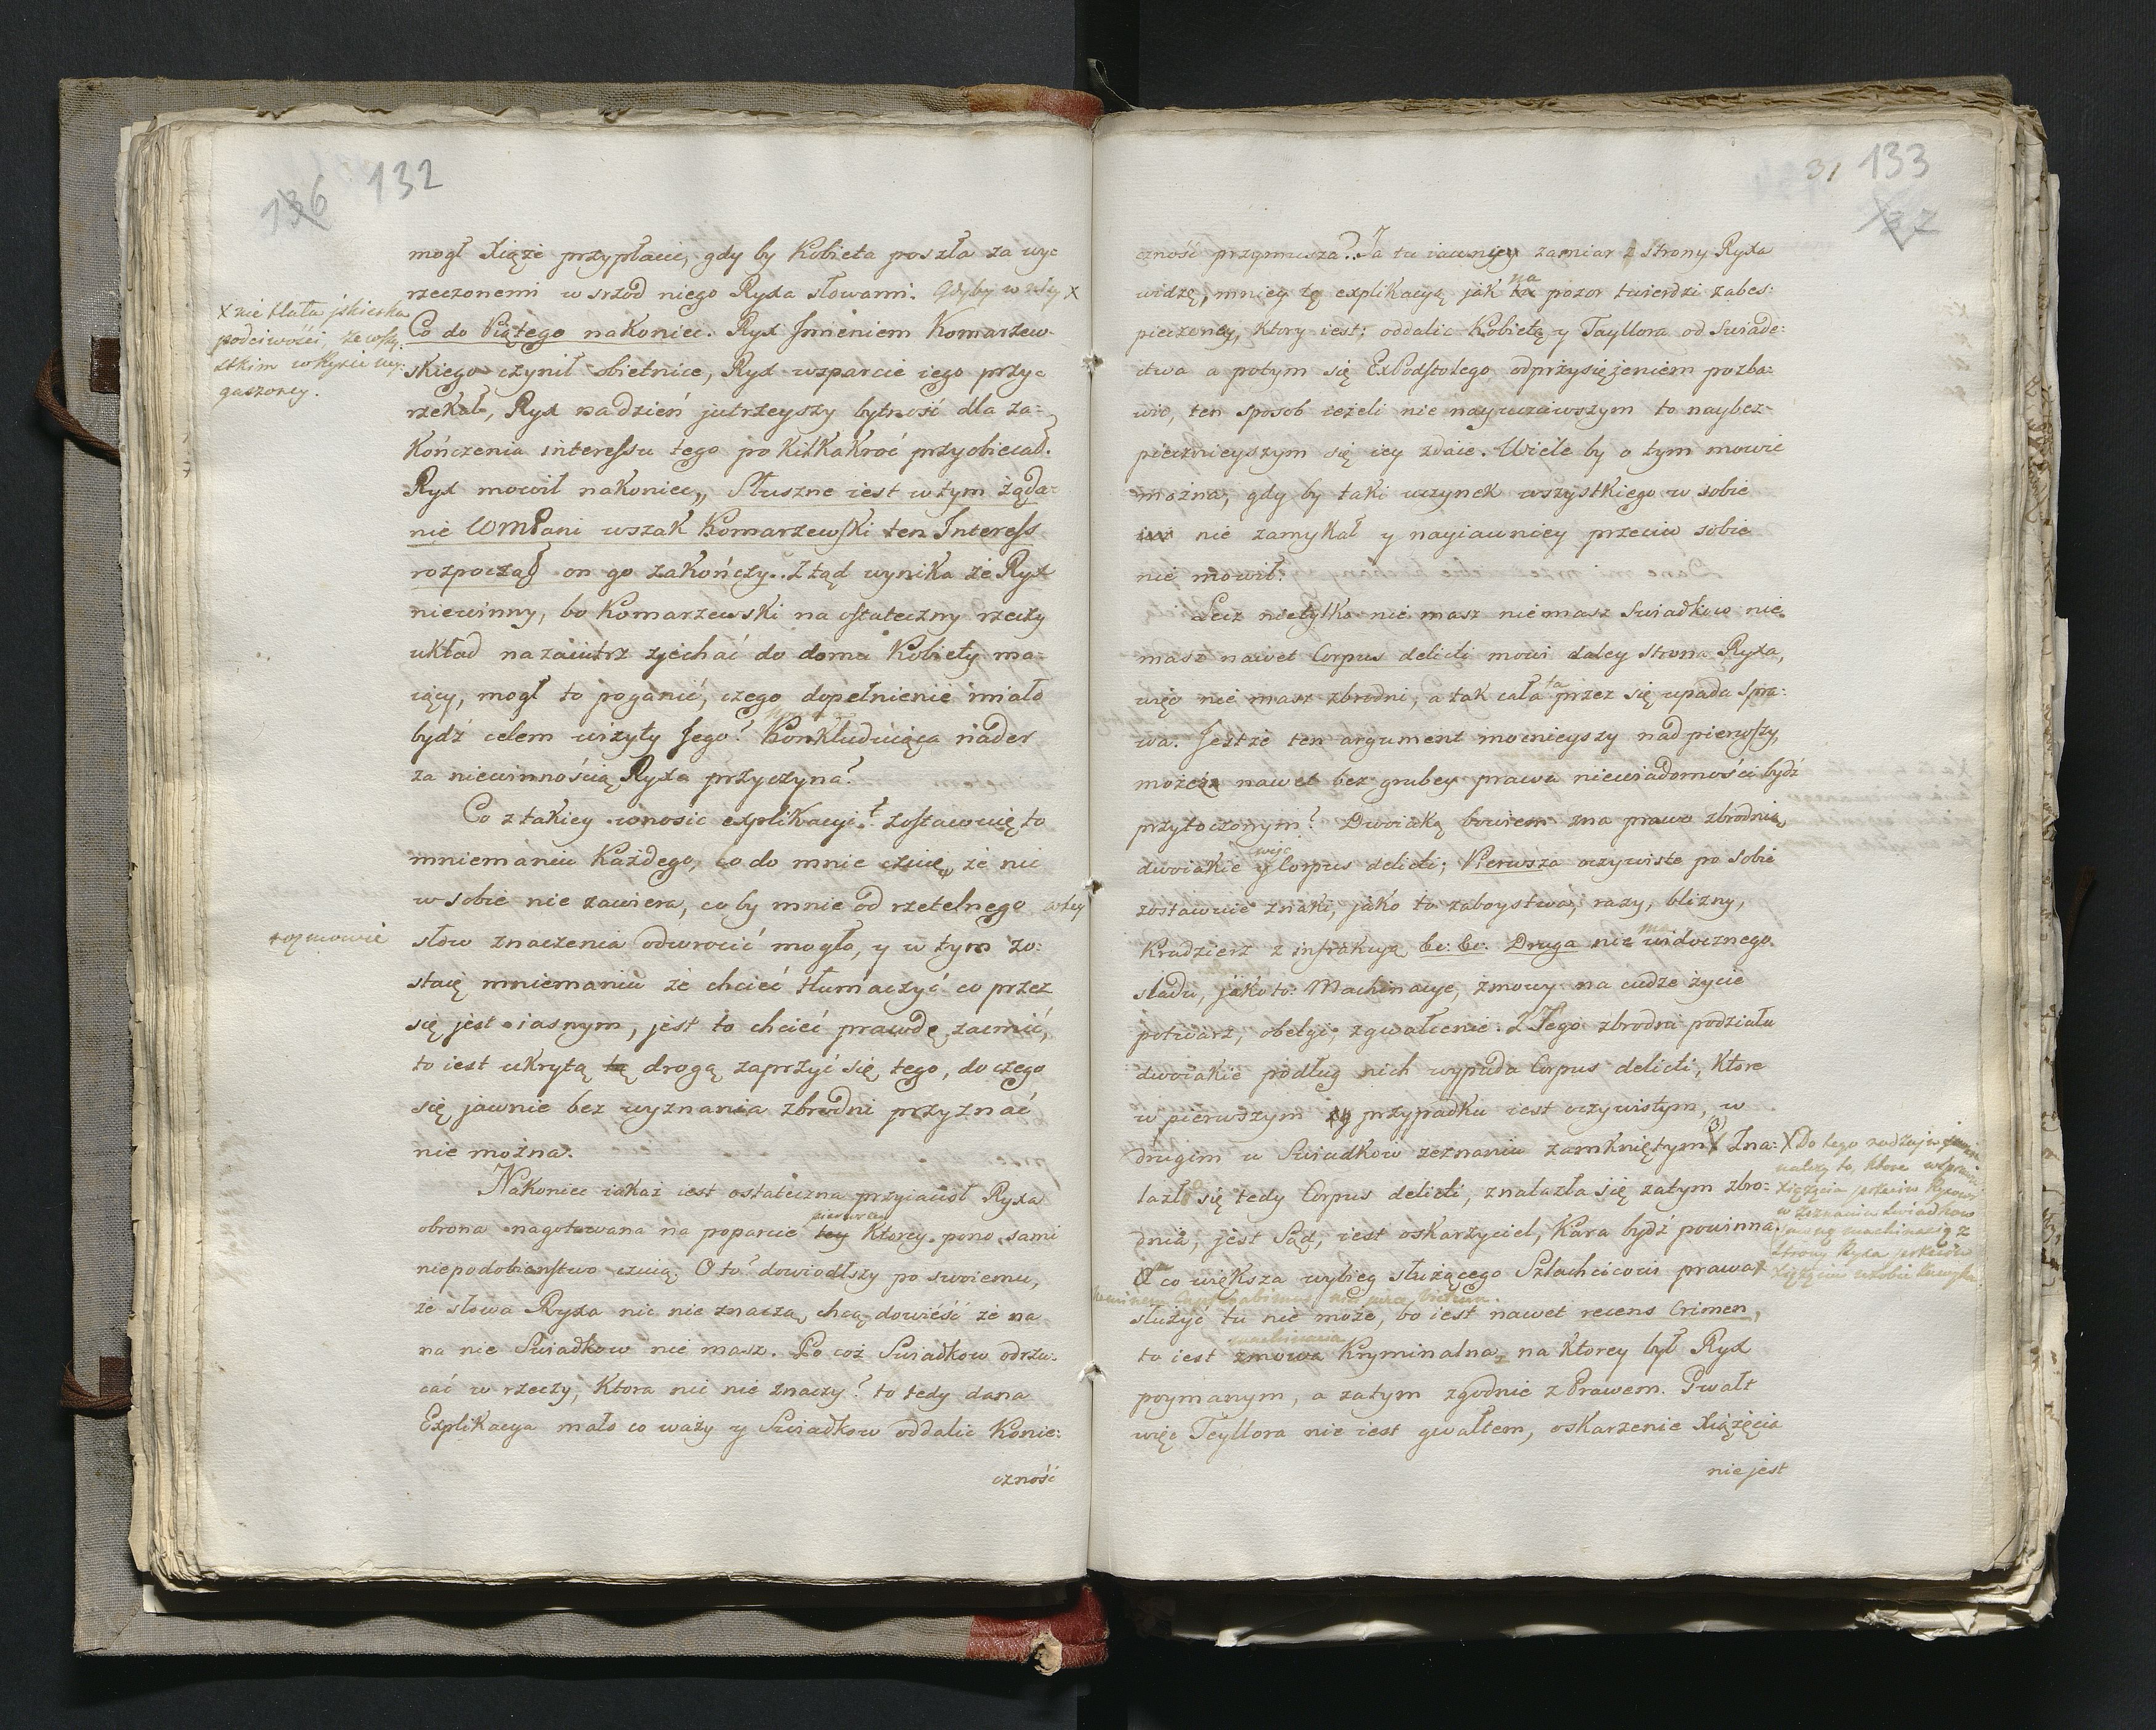 136 132
mogł Xiąże przypłacić, gdy by Kobieta poszła za wy-
rzeczonemi w srzod niego Ryxa słowami. Gdyby w niey X
X nie tlała jskierka
podciwości, ze wszy-
stkim w Ryxie wy-
gaszoney.
Co do Piątego nakoniec. Ryx Jmieniem Komarzew-
skiego czynił obietnice, Ryx wsparcie iego przy-
rzekał, Ryx na dzień jutrzeyszy bytność dla za-
kończenia interessu tego po kilkakroć przyobiecał.
Ryx mowił nakoniec „ Słuszne iest w tym żąda-
nie WMPani wszak Komarzewski ten Interess
rozpoczął on go zakończy. Ztąd wynika że Ryx
niewinny, bo Komarzewski na ostateczny rzeczy
układ nazaiutrz zjechać do domu Kobiety ma-
iący, mogł to poganić, czego dopełnienie miało
bydź celem wizyty Jego? Konkluduiąca nader
za niewinnością Ryxa przyczyna?
Co z takiey wnosić explikacyi? zostawuię to
mniemaniu Każdego, co do mnie czuię, że nic
w sobie nie zawiera, co by mnie od rzetelnego w tey
rozmowie
słow znaczenia odwrocić mogło, y w tym zo-
staię mniemaniu że chcieć tłumaczyć co przez
się jest iasnym, jest to chcieć prawdę zaćmić,
to iest ukrytą tą drogą zaprzyć się tego, do czego
się jawnie bez wyznania zbrodni przyznać
nie można.
Nakoniec iakaż iest ostateczna przyiacioł Ryxa
obrona nagotowana na poparcie tey pierwszey Ktorey pono sami
niepodobieństwo czuią. Oto dowiodłszy po swoiemu,
że słowa Ryxa nic nie znaczą, chcą dowieść że na
na nie Swiadkow nie masz. Po coż Swiadkow odrzu-
cać w rzeczy, Ktora nic nie znaczy? to tedy dana
Explikacya mało co waży y Swiadkow oddalić Konie-
czność
31 133
137
czność przymusza? Ja tu iawniey zamiar z Strony Ryxa
widzę, mniey tę explikacyą jak na pozor twierdzi zabes-
pieczoney, ktory iest; oddalić Kobietę y Tayllora od Swiade-
ctwa a potym się ExPodstolego odprzysiężeniem pozba-
wić, ten sposob ieżeli nie nayuczciwszym to naybez-
piecznieyszym się iey zdaie. Wiele by o tym mowić
można, gdy by taki uczynek wszystkiego w sobie
iuż nie zamykał y nayiawniey przeciw sobie
nie mowił.
Lecz nietylko nie masz niemasz Swiadkow nie
masz nawet Corpus delicti mowi daley strona Ryxa,
więc nie masz zbrodni, a tak cała ta przez się upada spra-
wa. Jestże ten argument mocnieyszy nad pierwszy,
możeż nawet bez grubey prawa niewiadomości bydź
przytoczonym? Dwoiaką bowiem zna prawo zbrodnię,
dwoiakie więc y Corpus delicti; Pierwsza oczywiste po sobie
zostawuie znaki, jako to zaboystwa, razy, blizny,
Kradzierz z infrakcyą &c: &c: Druga nie ma widocznego
sladu, jako to: Machinacye, zmowy na cudze życie
potwarz, obelgi, zgwałcenie. Z Tego zbrodni podziału
dwoiakie podług nich wypada Corpus delicti, Ktore
w pierwszym przypadku iest oczywistym, w
drugim w Swiadkow zeznaniu zamkniętym X Zna-
lazło się tedy Corpus delicti, znalazła się zatym zbro-
dnia, jest Sąd, iest oskarżyciel, Kara bydź powinna.
X Do tego rodzaju
należy to, ktore w sprawie
Xiążęcia przeciw Ryxowi
w zeznaniu Swiadkow
jawną machinacyą z
strony Ryxa przeciw
Xiążęciu w sobie zamyka
A co większa wybieg służącego Szlachcicowi prawa
neminem Captivabimus nisi jure victum.
służyć tu nie może, bo iest nawet recens Crimen,
to iest zmowa machinacya Kryminalna, na ktorey był Ryx
poymanym, a zatym zgodnie z Prawem. Gwałt
więc Teyllora nie iest gwałtem, oskarzenie Xiążęcia
nie jest